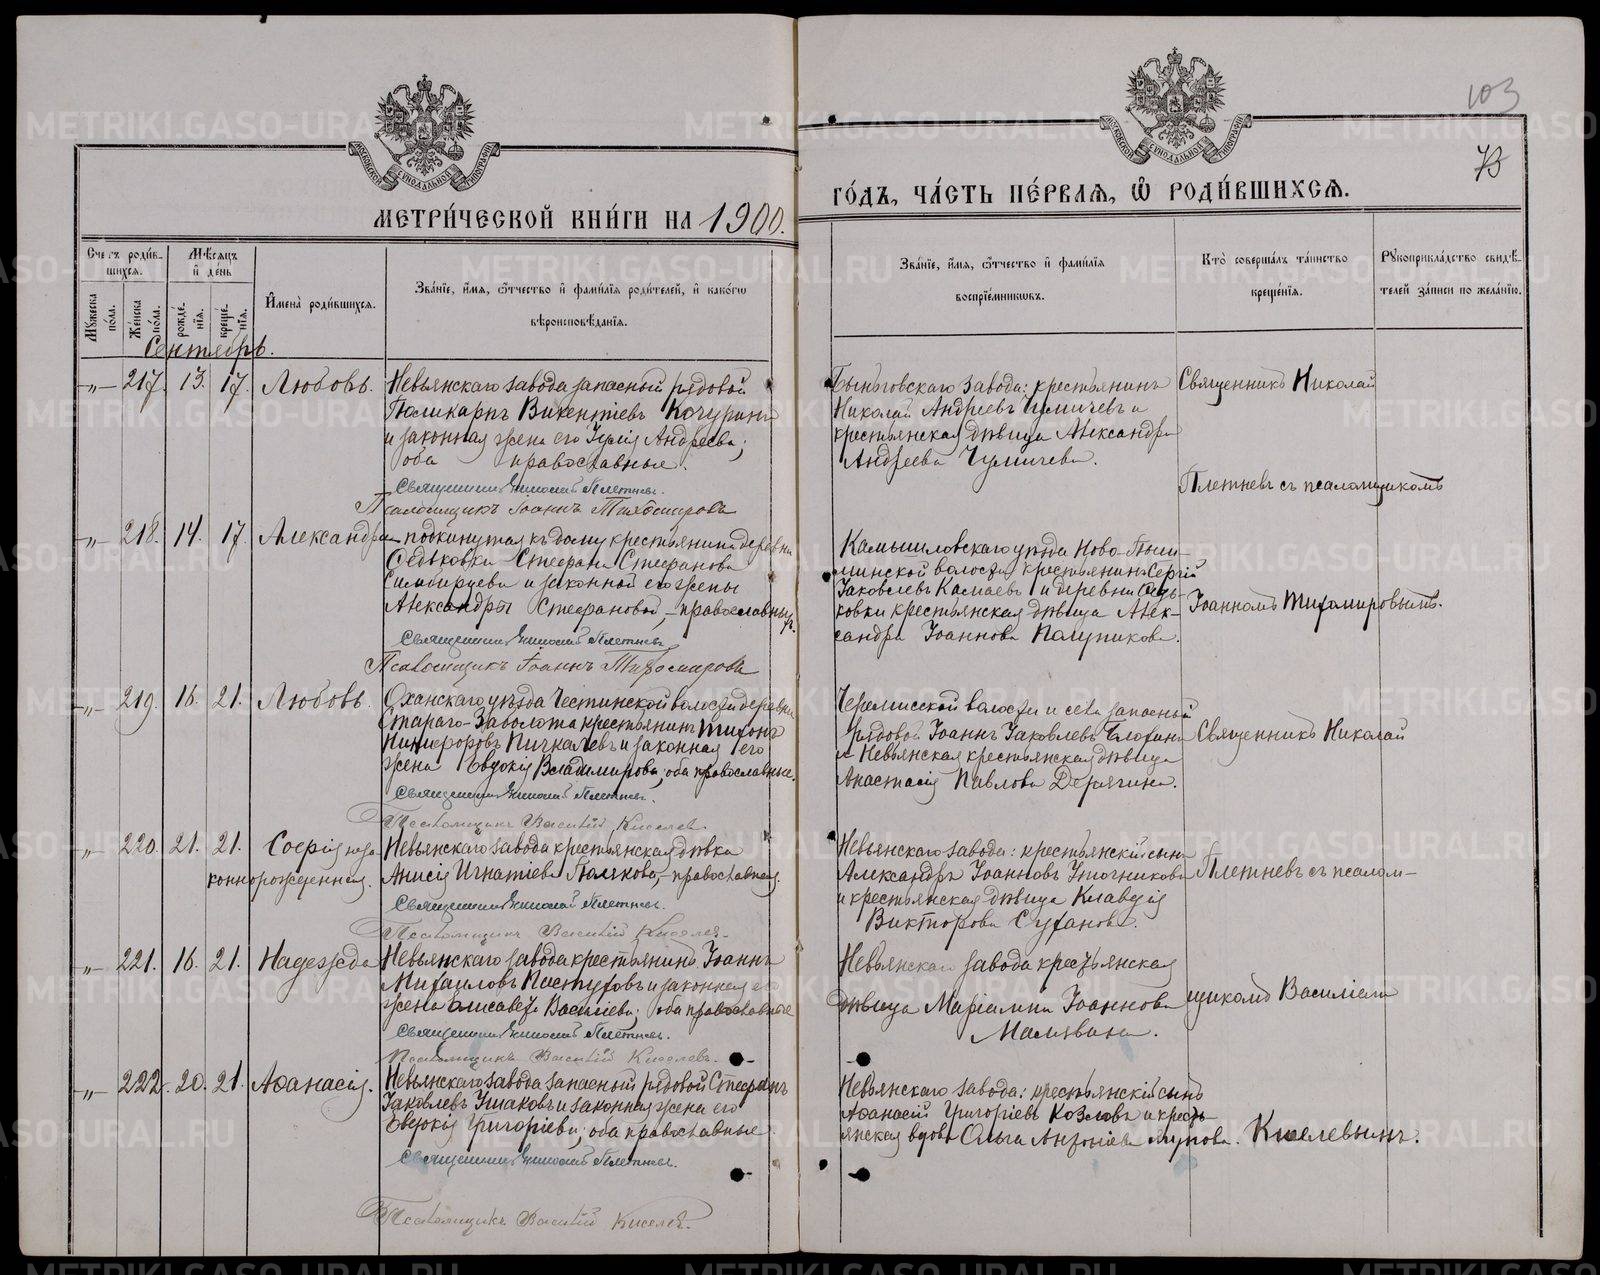 103
73
МЕТРИ́ЧЕСКОЙ КНИ́ГИ НА 1900.
ГО́ДЪ, ЧА́СТЬ ПЕ́РВАѦ, Ѡ҆ РОДИ́ВШИХСѦ.
Счетъ роди́вшихсѧ.
Мѣ́сѧцъ и҆ де́нь
Мꙋ́жеска по́ла.
Же́нска по́ла.
рожде́нїѧ.
креще́нїѧ.
И҆мена̀ роди́вшихсѧ.
Зва́нїе, и҆́мѧ, ѻ҆́тчество и҆ фами́лїѧ роди́телей, и҆ како́гѡ
вѣроисповѣ́данїѧ.
Зва́нїе, и҆́мѧ, ѻ҆́тчество и҆ фами́лїѧ
воспрїе́мниковъ.
Кто̀ соверша́лъ та́инство
креще́нїѧ.
Рꙋкоприкла́дство свидѣ́-
телей за́писи по жела́нїю.
Сентябрь.
-"- 217. 13. 17. Любовь.
Невьянскаго завода запасный рядовой
Поликарпъ Викентіевъ Кочуринъ
и законная жена его Іулія Андреева;
оба православные.
Священникъ Николай Плетневъ.
Псаломщикъ Іоаннъ Тихомировъ
Быньговскаго завода: крестьянинъ
Николай Андреевъ Чумичевъ и
крестьянская дѣвица Александра
Андреева Чумичева.
Священникъ Николай
Плетневъ съ псаломщикомъ
-"- 218. 14. 17. Александра
подкинутая къ дому крестьянина деревни
Федьковки Стефана Стефанова
и законной его жены
Александры Стефановой, православныхъ.
Священникъ Николай Плетневъ
Псаломщикъ Іоаннъ Тихомировъ
Камышловскаго уѣзда Ново-Пыш-
минской волости крестьянинъ Сергій
Іаковлевъ Камаевъ и деревни Федь-
ковки крестьянская дѣвица Алек-
сандра Іоаннова Полупикова.
Іоанномъ Тихомировымъ.
-"- 219. 16. 21. Любовь.
Оханскаго уѣзда Честинской волости деревни
Стараго-Заболота крестьянинъ Тихонъ
Никифоровъ Пичкалевъ и законная его
жена Евдокія Владимирова; оба православные.
Священникъ Николай Плетневъ.
Псаломщикъ Василій Киселев.
Черемисской волости и села запасный
рядовой Іоаннъ Іаковлевъ
и Невьянская крестьянская дѣвица
Анастасія Павлова Дерягина.
Священникъ Николай
-"- 220. 21. 21. Софія неза-
коннорожденная.
Невьянскаго завода крестьянская дѣвка
Анисія Игнатіева Полякова, - православная.
Священникъ Николай Плетневъ.
Псаломщикъ Василій Киселев.
Невьянскаго завода: крестьянскій сынъ
Александръ Іоанновъ
и крестьянская дѣвица Клавдія
Викторова Суханова.
Плетневъ съ псалом-
-"- 221. 16. 21. Надежда
Невьянскаго завода крестьянинъ Іоаннъ
Михаиловъ Пастуховъ и законная его
жена Елисавета Васильева; оба православные
Священникъ Николай Плетневъ.
Псаломщикъ Василій Киселевъ.
Невьянскаго завода крестьянская
дѣвица Маріамна Іоаннова
Малявина.
щикомъ Василіемъ
-"- 222. 20. 21. Аѳанасія.
Невьянскаго завода запасный рядовой Стефанъ
Іаковлевъ Ушаковъ и законная жена его
Евдокія Григоріева; оба православные.
Священникъ Николай Плетневъ.
Псаломщикъ Василій Киселев.
Невьянскаго завода: крестьянскій сынъ
Аѳанасій Григоріевъ Козловъ и кресть-
янская вдова Ольга Антоніева
Киселевымъ.
METRIKI.GASO-URAL.RU